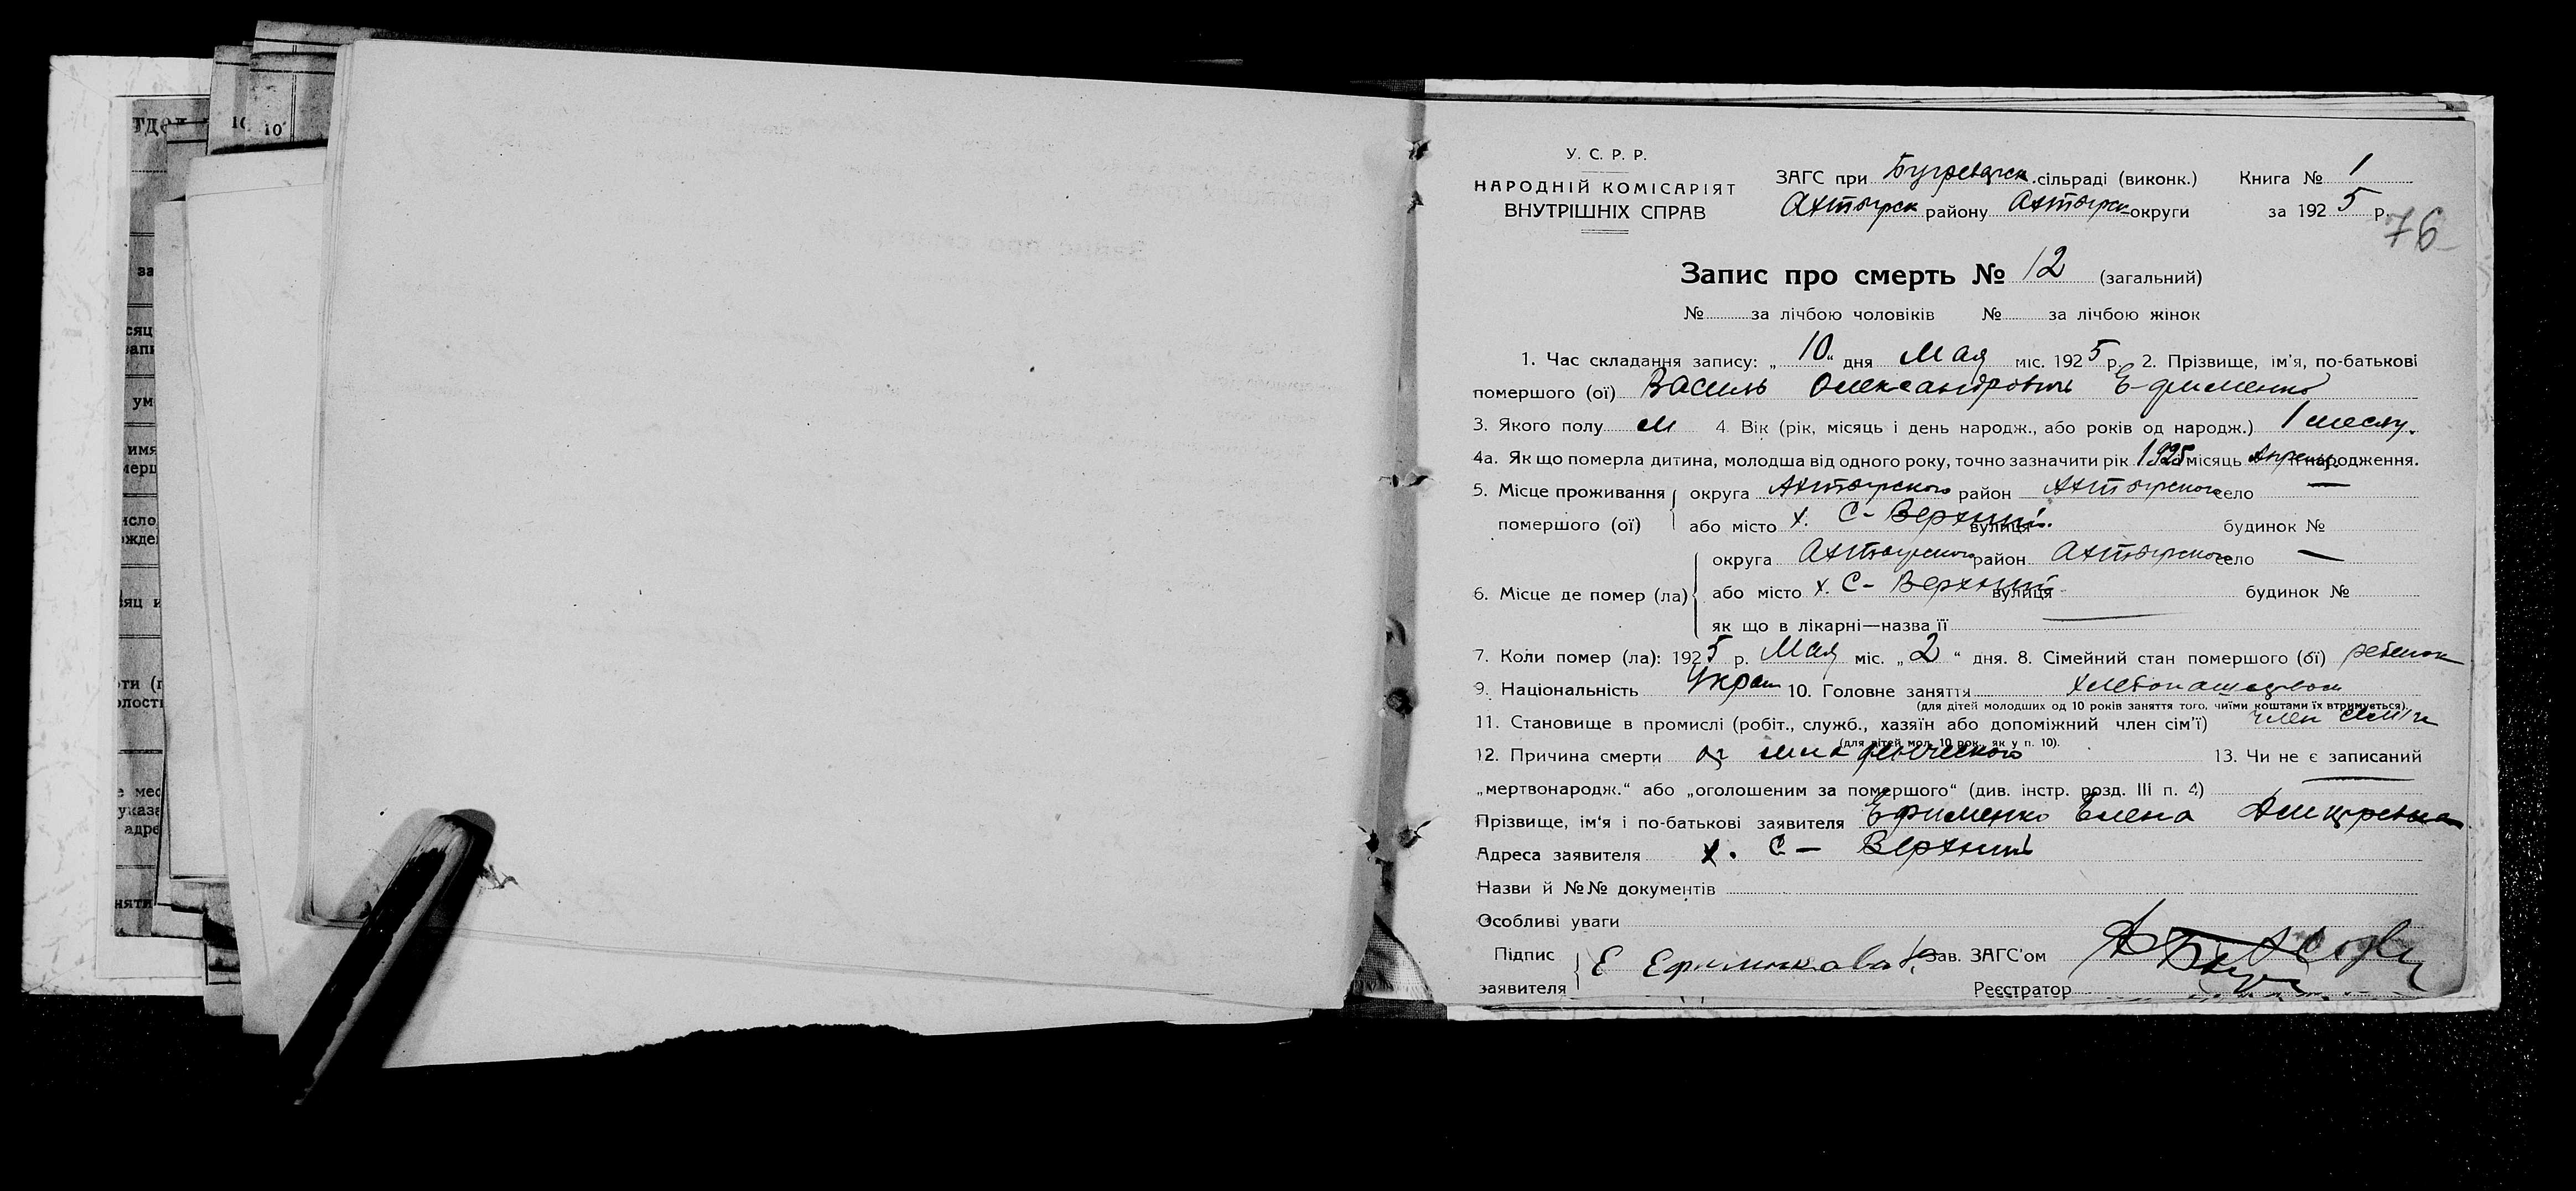 тде
10
10
за
сяц
запи
ум
имя
мерш
исло
ожде
яц и
ти (п
олост
е мес
указа
адре
няти
У. С. Р. Р.
НАРОДНІЙ КОМІСАРІЯТ
ВНУТРІШНІХ СПРАВ
ЗАГС при Бугреватск. сільраді (виконк.) Книга № 1
Ахтырск району Ахтырск округи за 1925 р.
76
Запис про смерть № 12 (загальний)
№ за лічбою чоловіків № за лічбою жінок
1. Час складання запису: „10" дня Мая міс. 1925 р. 2. Прізвище, ім'я, по-батькові
помершого (ої) Василь Олександрович Ефименко
3. Якого полу м 4. Вік (рік, місяць і день народж., або років од народж.) 1 месяц.
4а. Як що померла дитина, молодша від одного року, точно зазначити рік 1925 місяць Апрель народження.
5. Місце проживання округа Ахтырского район Ахтырского село —
помершого (ої) або місто х. С- Верхний. вулиця будинок №
округа Ахтырского район Ахтырского село —
6. Місце де помер (ла) або місто х. С- Верхний вулиця будинок №
як що в лікарні—назва її —
7. Коли помер (ла): 1925 р. Мая міс. „2" дня. 8. Сімейний стан помершого (ої) ребенок
9. Національність Украин 10. Головне заняття хлебопашеством
(для дітей молодших од 10 років заняття того, чиїми коштами їх втримується).
11. Становище в промислі (робіт., служб., хазяїн або допоміжний член сім'ї) член семьи
(для дітей мол. 10 рок. як у п. 10).
12. Причина смерти от младенческого 13. Чи не є записаний
„мертвонародж." або „оголошеним за помершого" (див. інстр. розд. III п. 4) —
Прізвище, ім'я і по-батькові заявителя Ефименко Елена Дмитревна
Адреса заявителя х. С — Верхний
Назви й №№ документів
Особливі уваги
Підпис заявителя Е Ефименкова Зав. ЗАГС'ом
Реєстратор